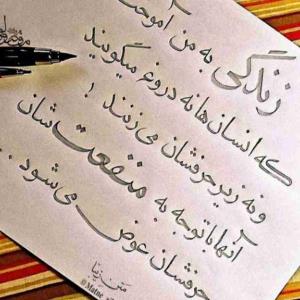 زندگی به من آموخت
که انسان‌ها نه دروغ میگویند
و نه زیر حرفشان می‌زنند !
آنها با توجه به منفعت‌شان
حرفشان عوض می‌شود ...
متن زیبا